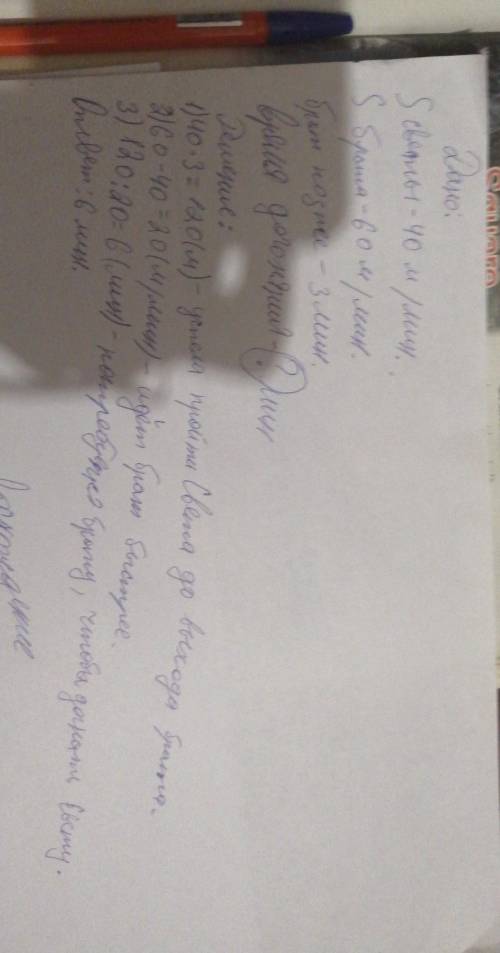 Дано:
S Светы - 40 м/мин.
S брата - 60 м/мин.
брат позже - 3 мин.
время догонял - ? мин
Решение:
1) 40·3=120(м) - успела пройти Света до выхода брата.
2) 60-40=20(м/мин) - идёт брат быстрее.
3) 120:20=6(мин) - потребуется брату, чтобы догнать Свету.
Ответ: 6 мин.